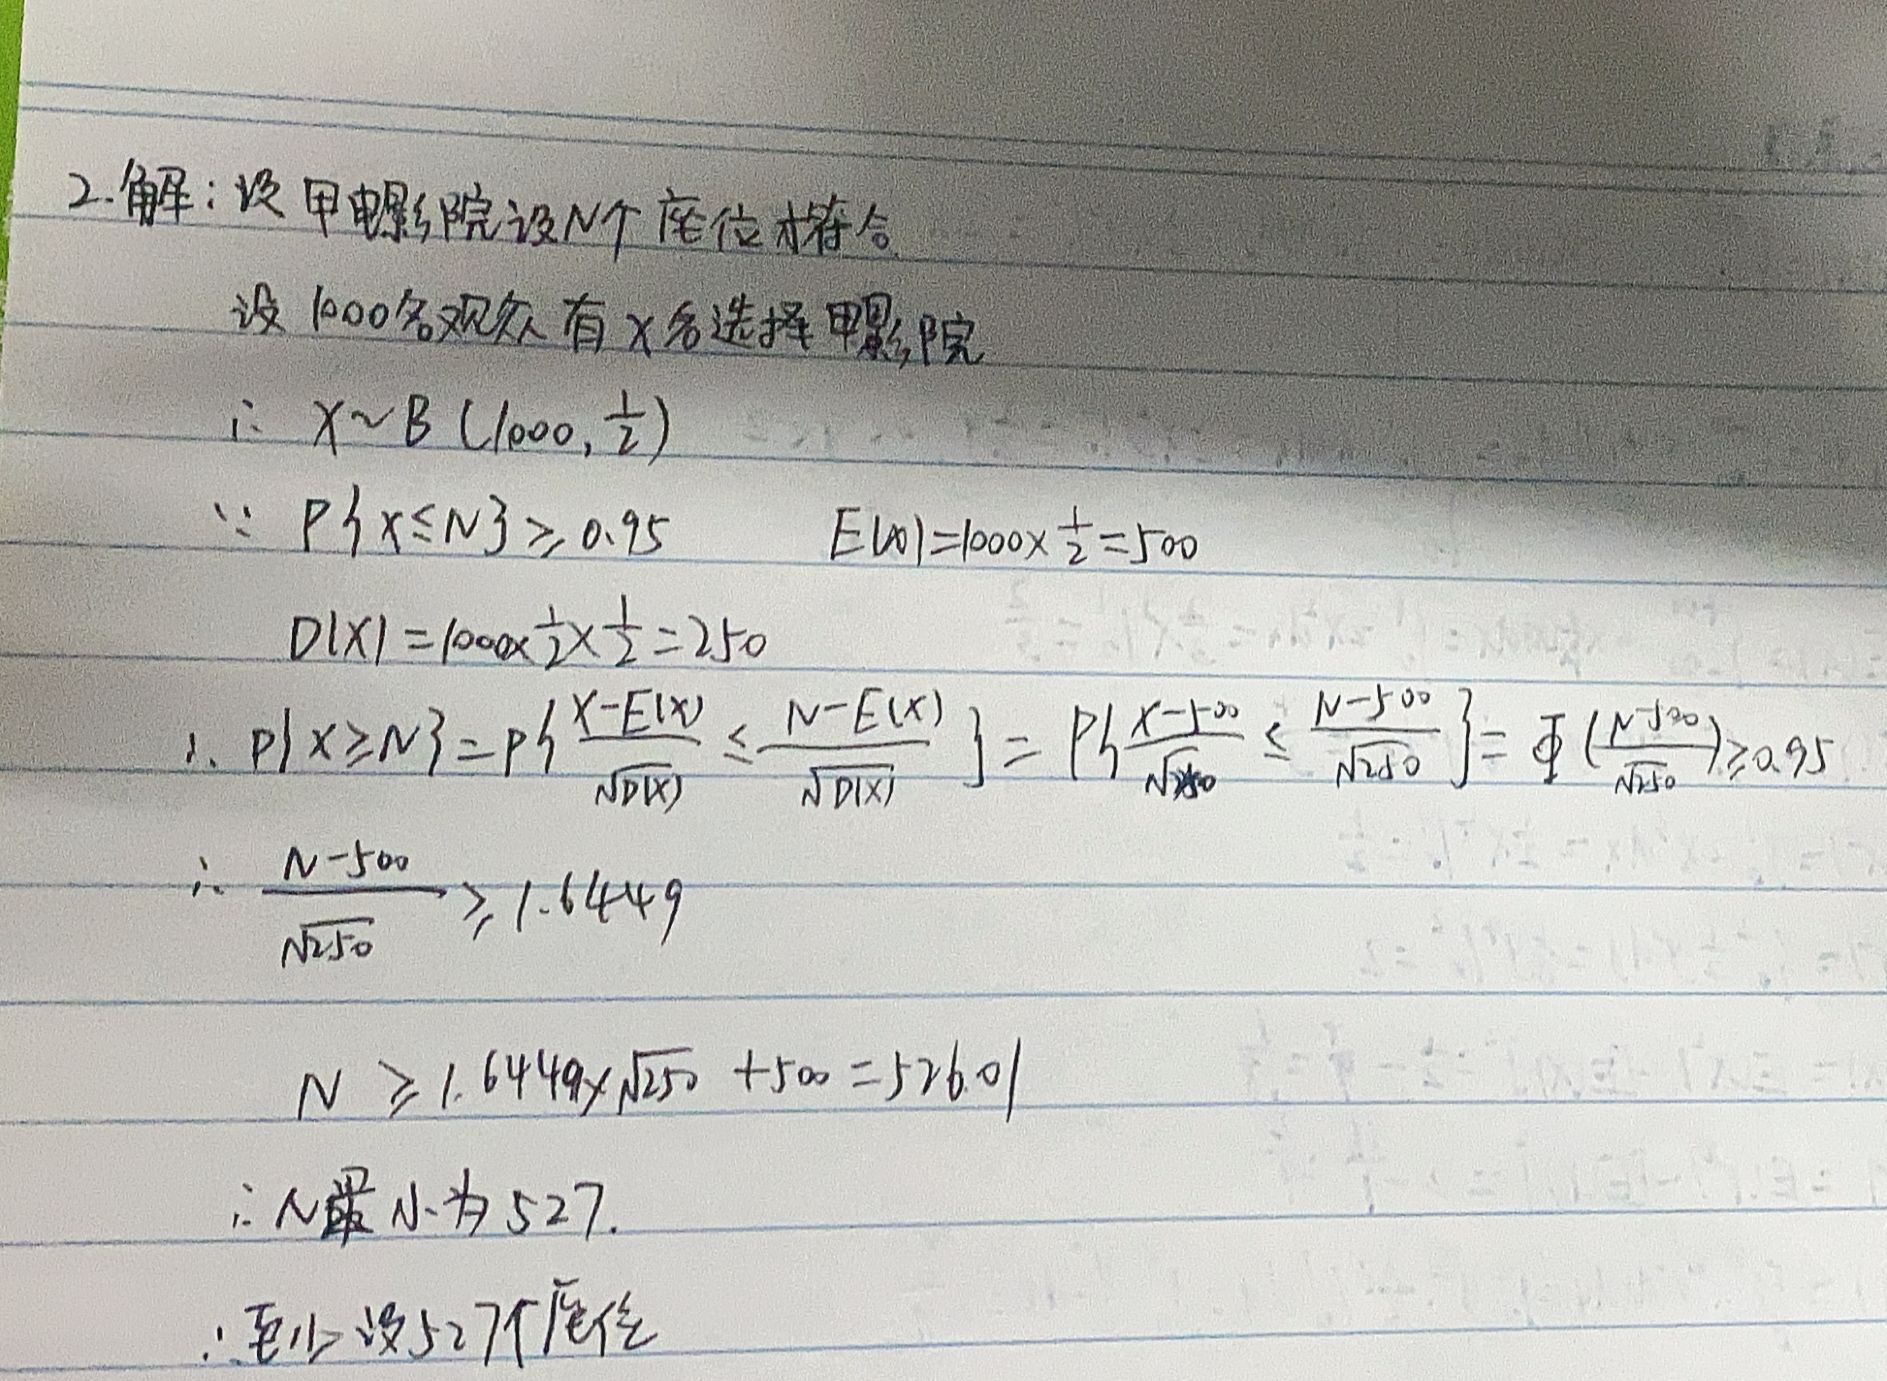 2.解：设甲电影院设N个座位才符合
设1000名观众有X名选择甲影院
∴ X~B(1000, 1/2)
∵ P{X≤N}≥0.95 E(X)=1000×1/2=500
D(X)=1000×1/2×1/2=250
∴ P{X≥N}=P{(X-E(X))/√D(X) ≤ (N-E(X))/√D(X)}=P{(X-500)/√250 ≤ (N-500)/√250}=Φ((N-500)/√250)≥0.95
∴ (N-500)/√250 ≥1.6449
N ≥1.6449×√250+500=526.01
∴N最小为527.
∴至少设527个座位